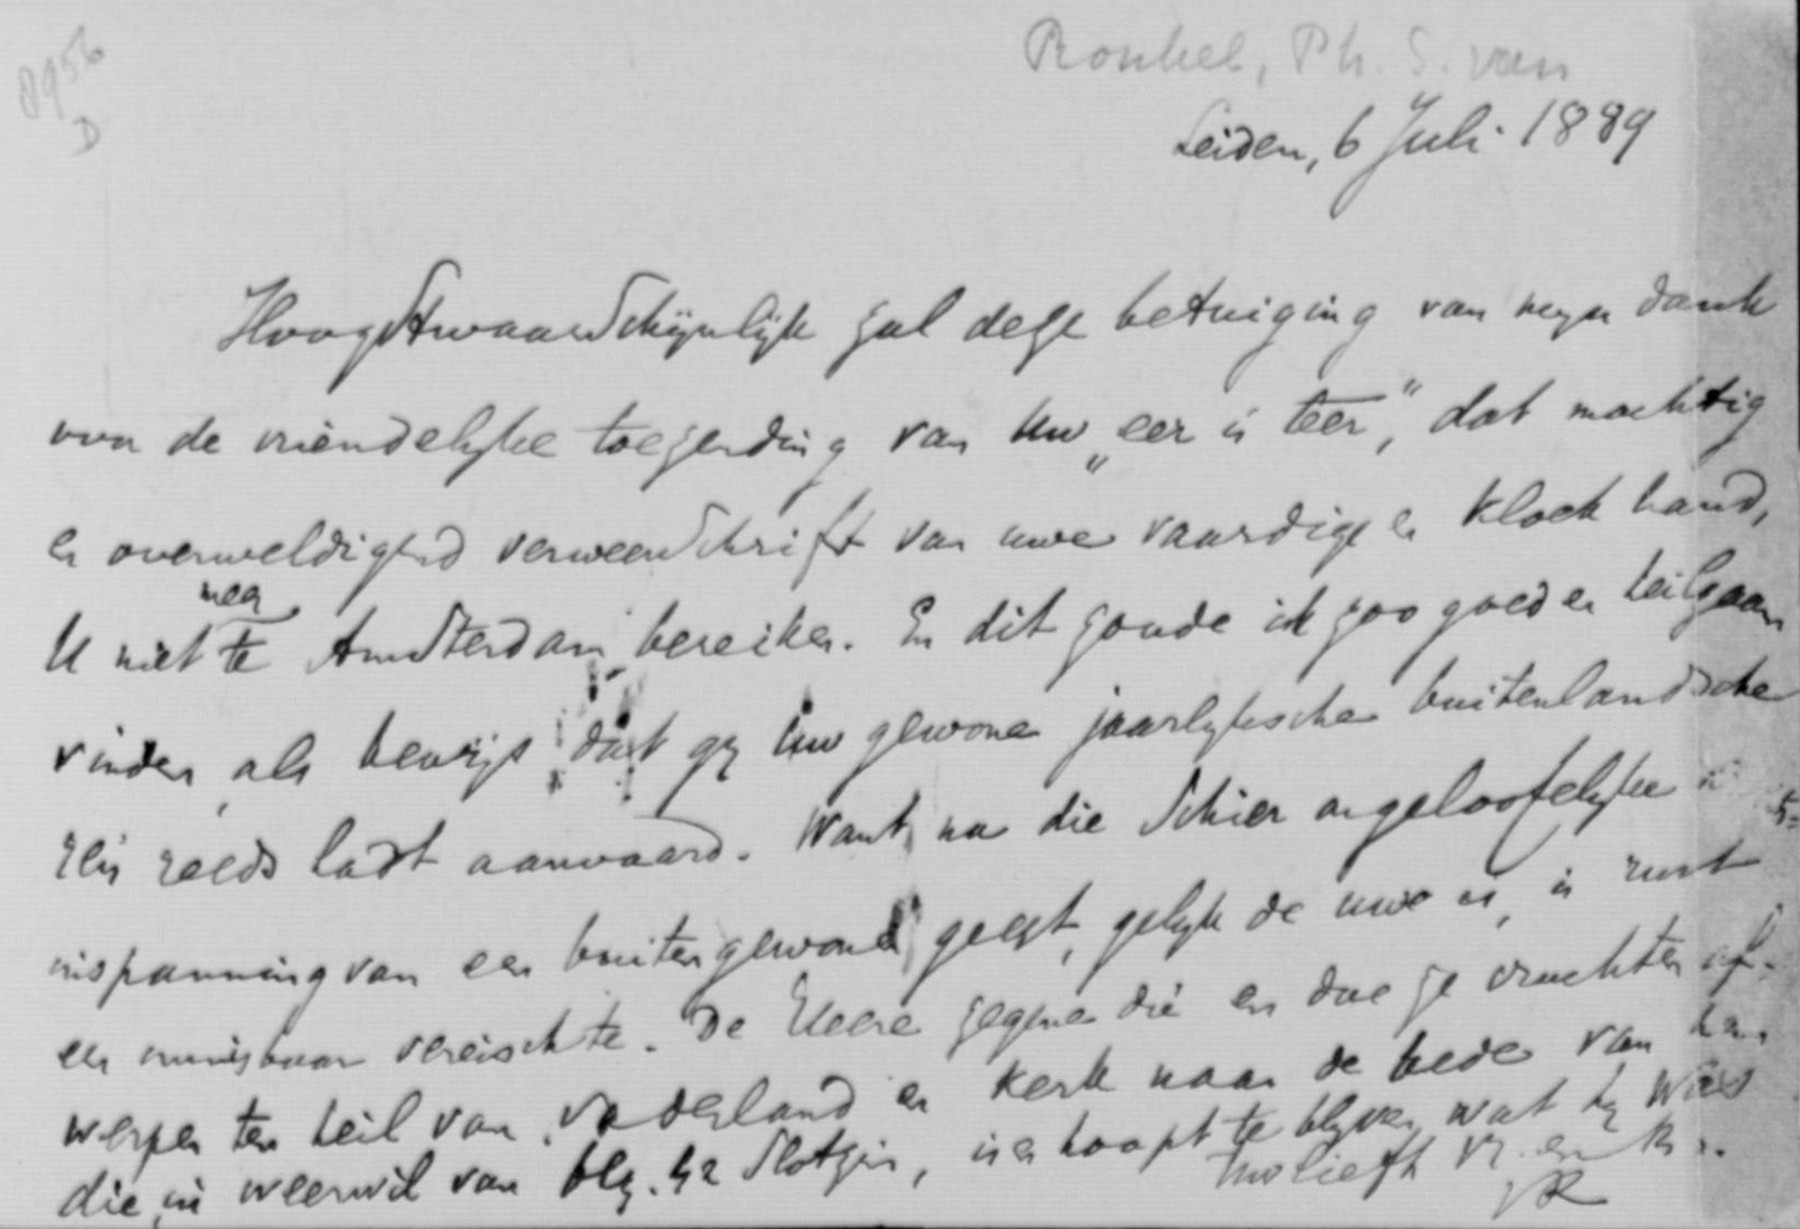 8956
D
Ronkel, Ph. S. van
Leiden, 6 Juli 1889
Hoogstwaarschijnlijk zal deze betuiging van mijn dank
voor de vriendelijke toezending van Uw „eer is teer", dat machtig
en overweldigend verweerschrift van uwe vaardige en kloek hand,
U niet meer te Amsterdam bereiken. En dit zoude ik zoo goed en heilzaam
vinden, als bewijs dat gij Uw gewone jaarlijksche buitenlandsche
reis reeds hadt aanvaard. Want, na die schier ongeloofelijke
inspanning van een buitengewone geest, gelijk de uwe is, is rust
een onmisbaar vereischte. De Heere zegene die en doe ze vruchten af-
werpen ten heil van vaderland en kerk naar de bede van
die, in weerwil van blz. 42 slotzin, is en hoopt te blijven wat hij was
Uw liefh. vr. en br.
vR